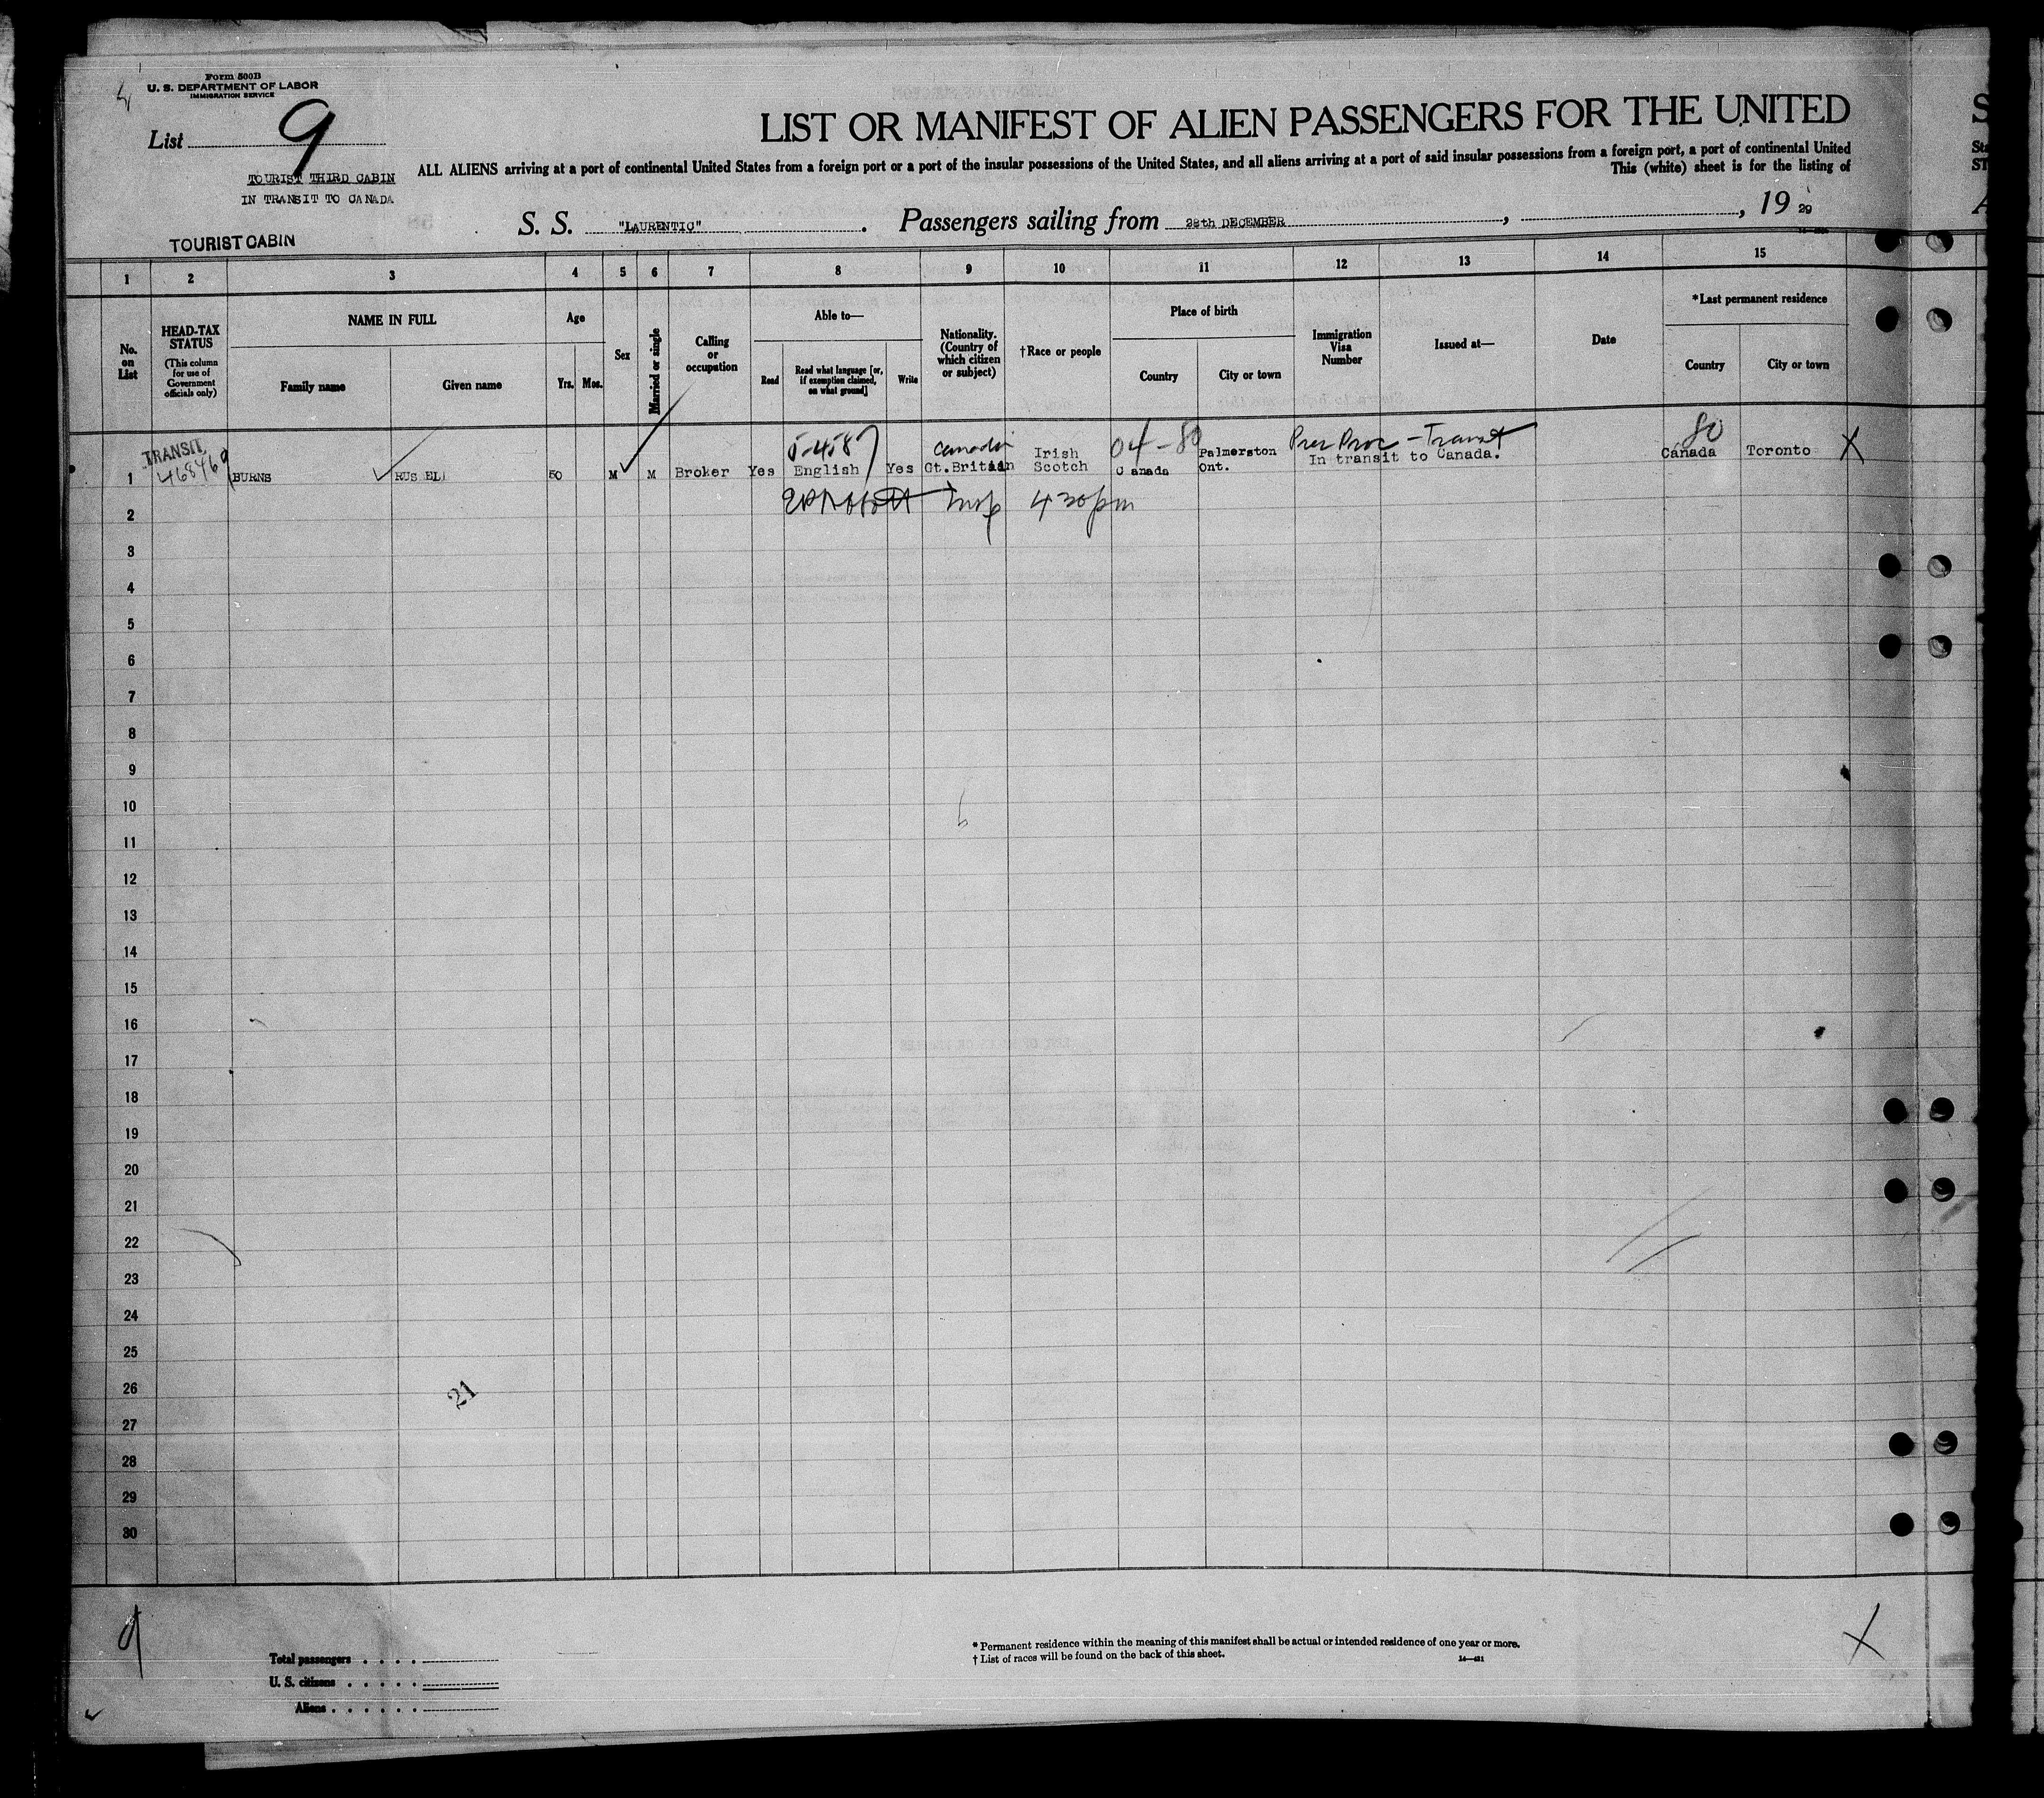 Form 500B
U. S. DEPARTMENT OF LABOR
IMMIGRATION SERVICE
List 9
TOURIST THIRD CABIN
IN TRANSIT TO CANADA
TOURIST CABIN
LIST OR MANIFEST OF ALIEN PASSENGERS FOR THE UNITED
ALL ALIENS arriving at a port of continental United States from a foreign port or a port of the insular possessions of the United States, and all aliens arriving at a port of said insular possessions from a foreign port, a port of continental United
This (white) sheet is for the listing of
S. S. "LAURENTIC". Passengers sailing from 28th DECEMBER, , 19 29
1 2 3 4 5 6 7 8 9 10 11 12 13 14 15
No. on List
HEAD-TAX STATUS
(This column for use of Government officials only)
NAME IN FULL
Family name
Given name
Age
Yrs.
Mos.
Sex
Married or single
Calling or occupation
Able to—
Read
Read what language [or, if exemption claimed, on what ground]
Write
Nationality. (Country of which citizen or subject)
†Race or people
Place of birth
Country
City or town
Immigration Visa Number
Issued at—
Date
*Last permanent residence
Country
City or town
TRANSIT 5-4587 Canadian 04-80 80
1 468469 BURNS RUS EL 50 M M Broker Yes English Yes Gt.Britain Irish Scotch Canada Palmerston Ont. In transit to Canada. Canada Toronto X
2 Insp 4 30 pm
3
4
5
6
7
8
9
10
11
12
13
14
15
16
17
18
19
20
21
22
23
24
25
26
27
28
29
30
21
9
X
Total passengers . . . .
U. S. citizens . . . . .
Aliens . . . . . .
* Permanent residence within the meaning of this manifest shall be actual or intended residence of one year or more.
† List of races will be found on the back of this sheet.